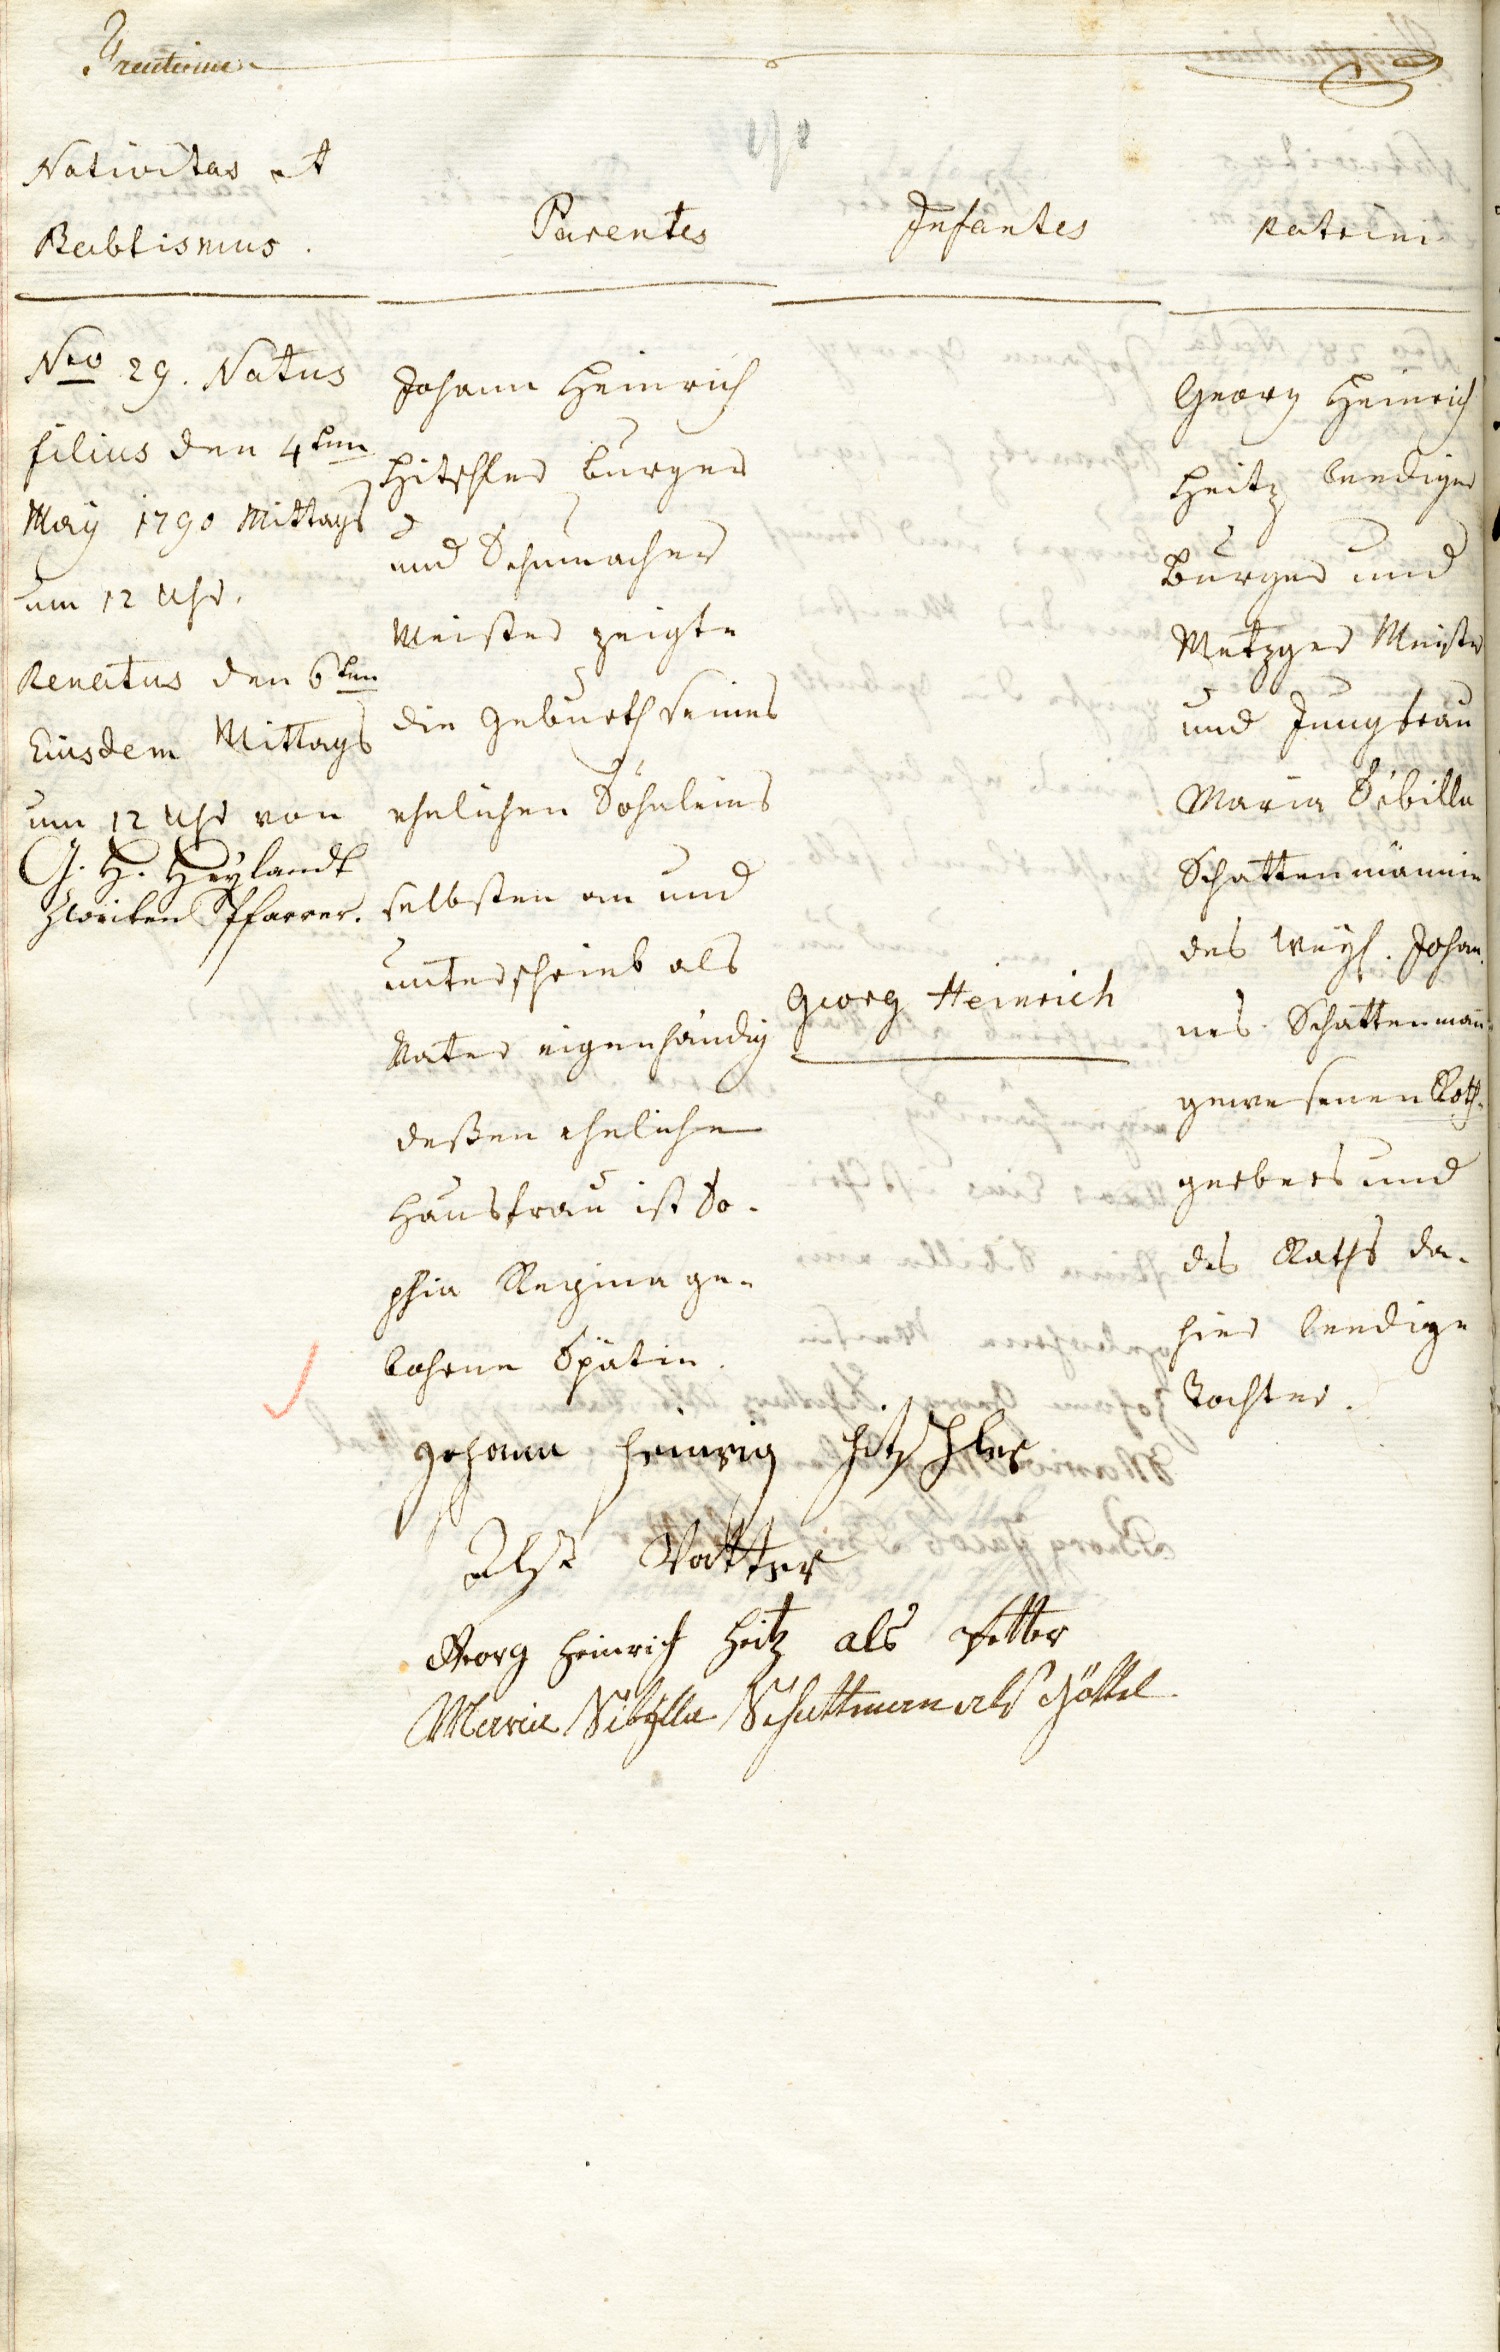 Trentieme
Nativitas et
Babtismus.
Parentes
Infantes
Patrini
Nro 29. Natus
filius den 4ten
May 1790 Mittags
um 12 Uhr.
Renatus den 6ten
Eiusdem Mittags
um 12 Uhr von
G. H. Heylandt
zweiten Pfarrer.
Johann Heinrich
Hitschler burger
und Schumacher
Meister zeigte
die Geburth seines
ehelichen Söhnleins
selbsten an und
unterschrieb als
Vater eigenhändig
deßen eheliche
Hausfrau ist So-
phia Regina ge-
bohrne Spätin.
Georg Heinrich
Georg Heinrich
Heitz leediger
Burger und
Metzger Meister
und Jungfrau
Maria Sibilla
Schattenmännin
des weyl. Johan-
nes Schattenmann
gewesenen Roth-
gerbers und
des Raths da-
hier leedige
Tochter.
Johann Heinrig Hitschler
Alß Vatter
Georg Heinrich Heitz als Petter
Maria Sibÿlla Schattmann als Göttel